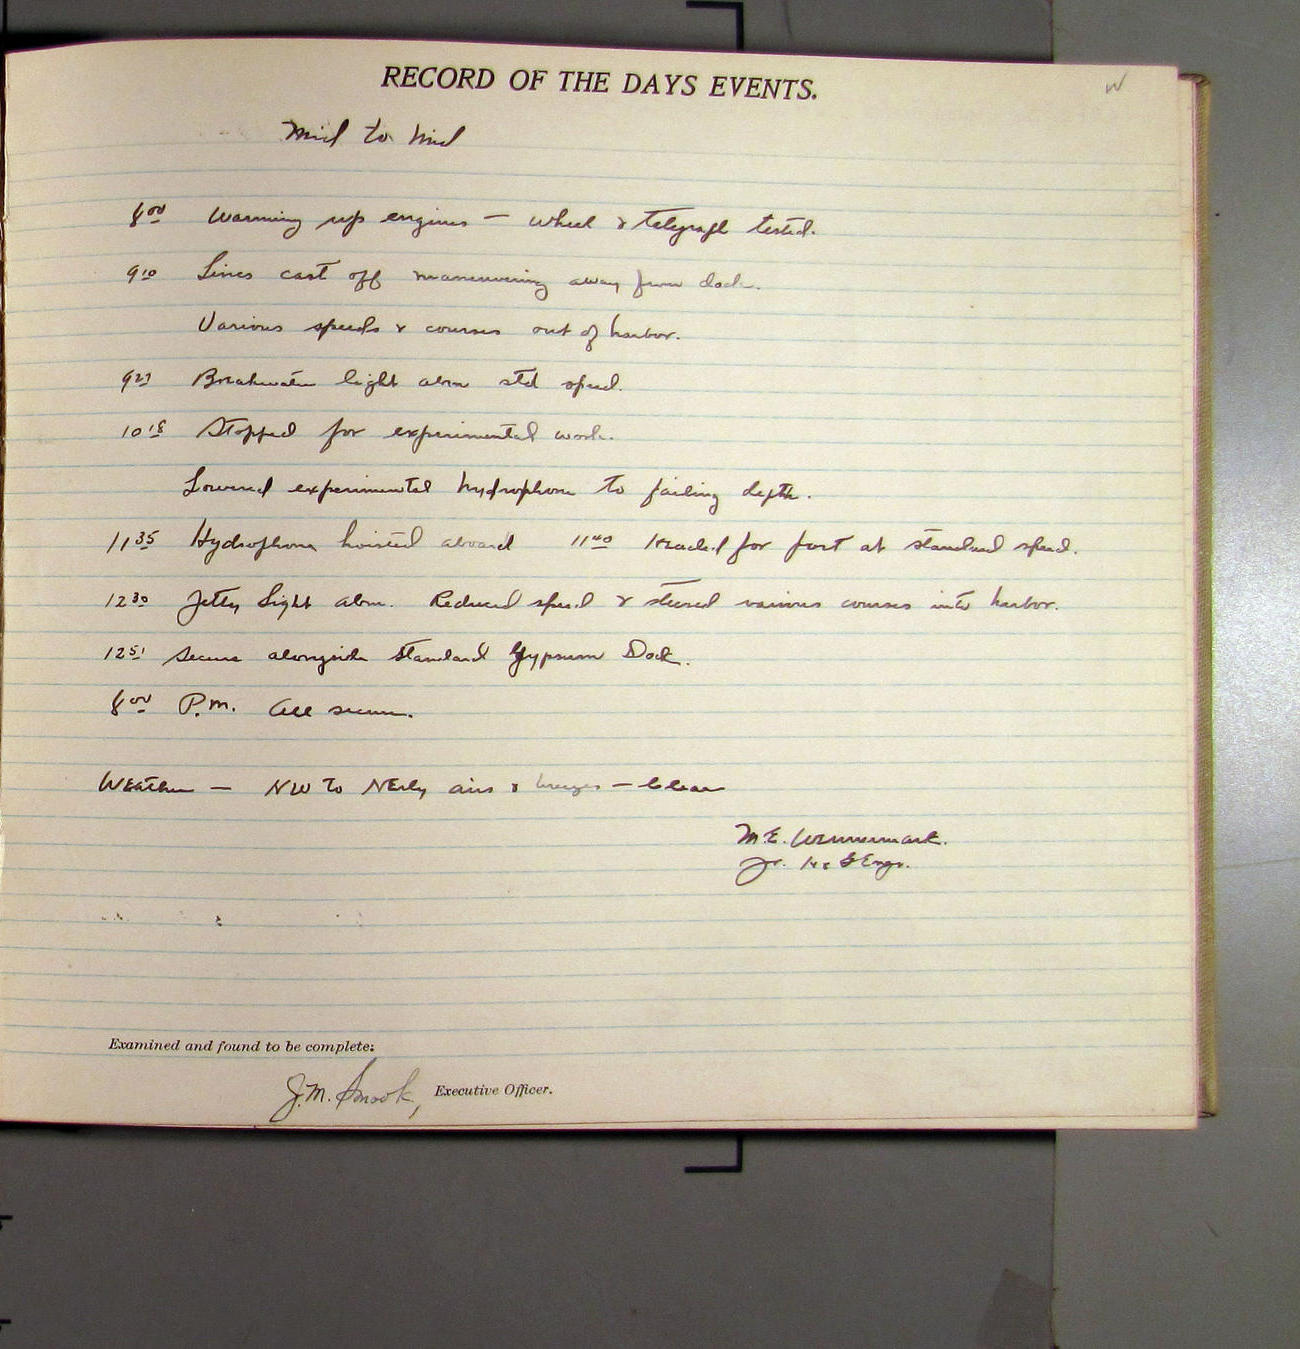 RECORD OF THE DAYS EVENTS.
W
Mid to Mid
8 00 Warming up engines — wheel & telegraph tested.
9 10 Lines cast off maneuvering away from dock.
Various speeds & courses out of harbor.
9 27 Breakwater light abm std speed.
10 18 Stopped for experimental work.
Lowered experimental hydrophone to failing depth.
11 35 Hydrophone hoisted aboard 11 40 Headed for port at standard speed.
12 30 Jetty Light abm. Reduced speed & steered various courses into harbor.
12 51 Secure alongside Standard Gypsum Dock.
8 00 P.M. All secure.
Weather — NW to NEly airs & breezes — Clear
M.E. Wennermark.
Jr. H & G Engr.
Examined and found to be complete:
J.M. Smook, Executive Officer.